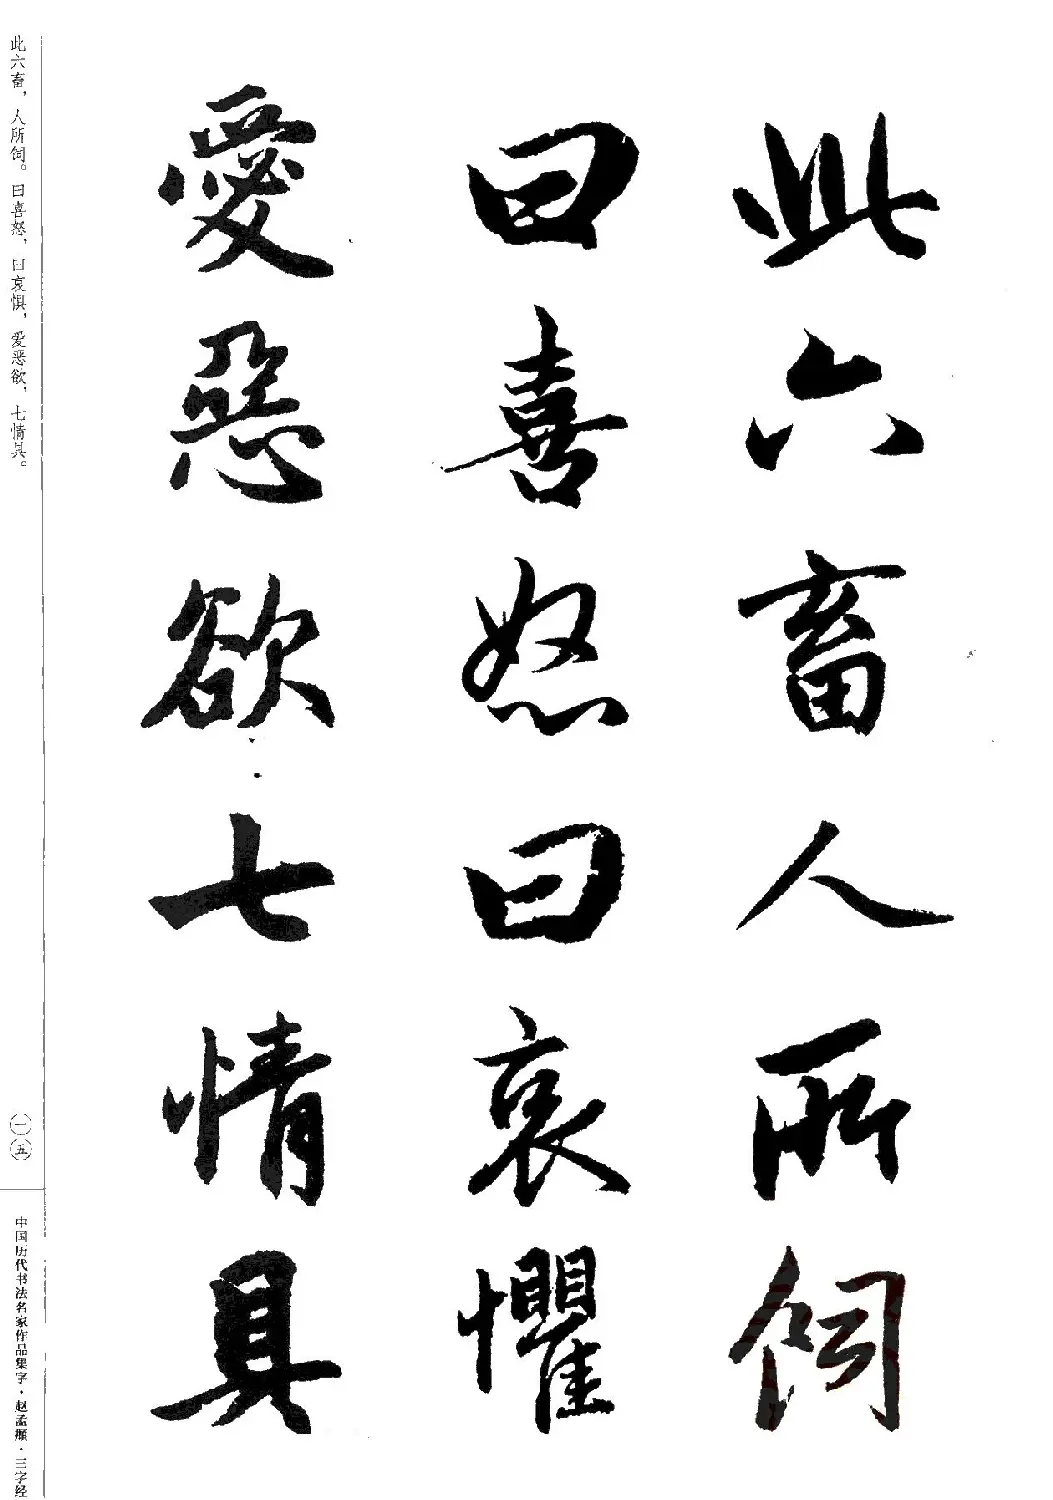 此六畜人所飼
曰喜怒曰哀懼
愛惡欲七情具
此六畜，人所饲。曰喜怒，曰哀惧，爱恶欲，七情具。
一五
中国历代书法名家作品集字·赵孟頫·三字经